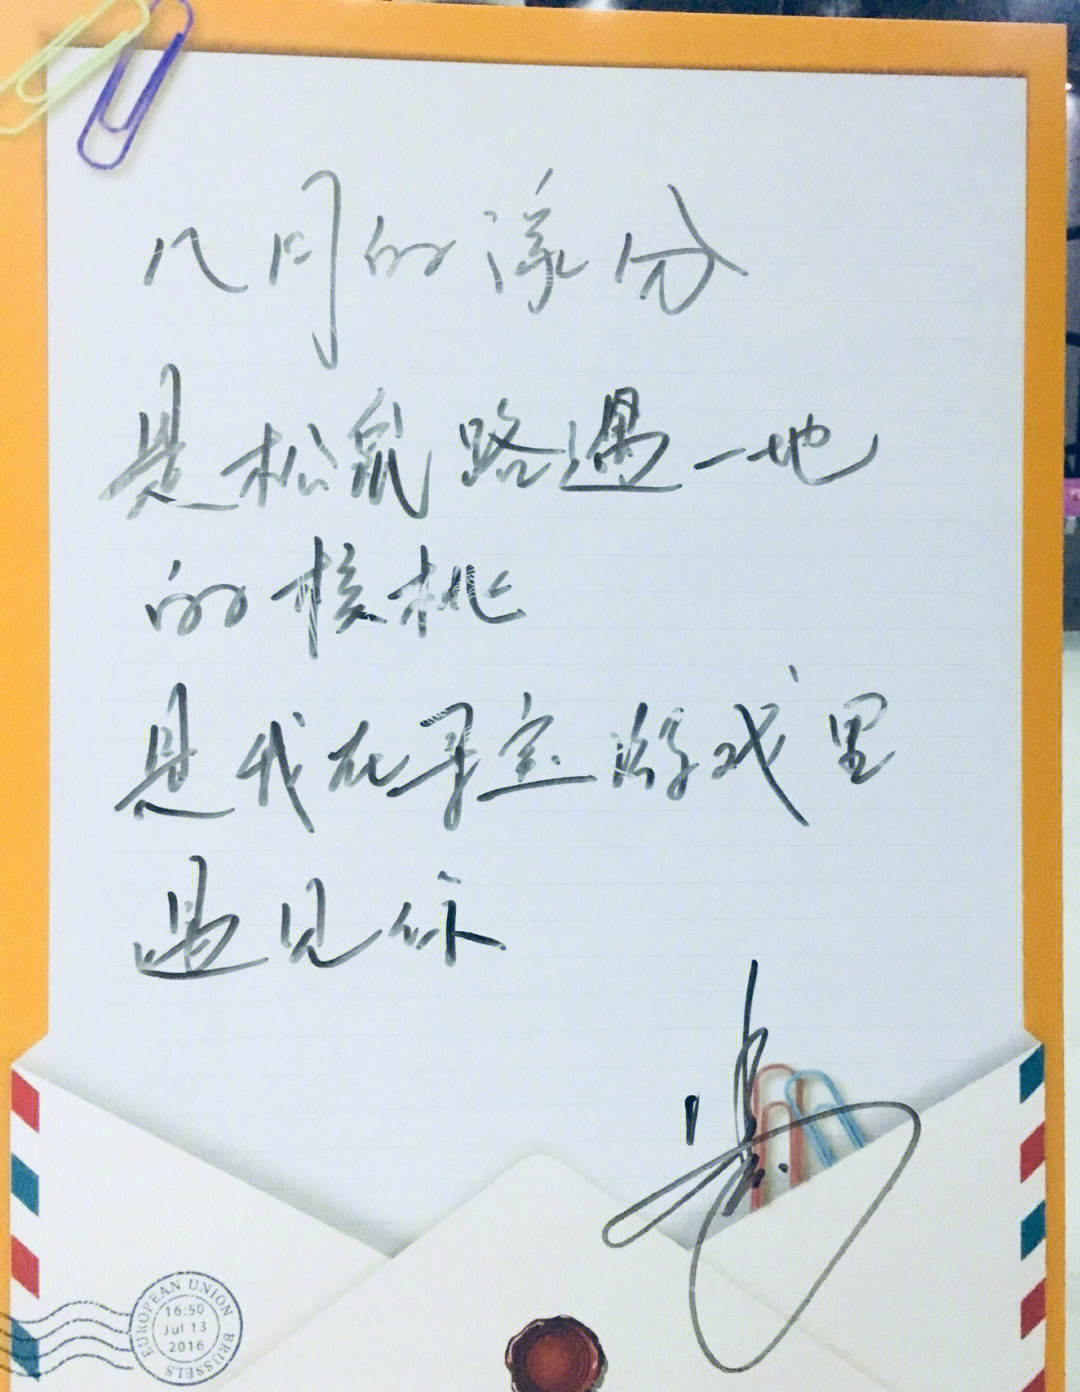 八月的缘分
是松鼠路遇一地
的核桃
是我在寻宝游戏里
遇见你
EUROPEAN UNION
16:50
Jul 13
2016
BRUSSELS